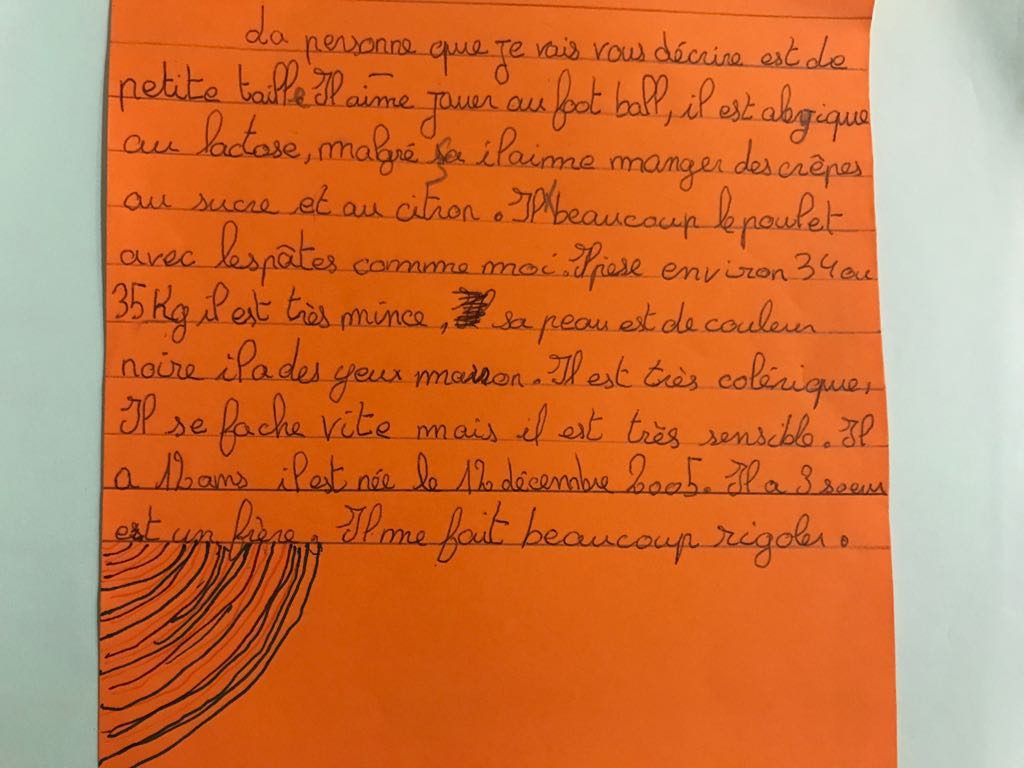 La personne que je vais vous décrire est de
petite taille Il aime jouer au foot ball, il est alergique
au lactose, malgré sa il aime manger des crêpes
au sucre et au citron. Il beaucoup le poulet
avec les pâtes comme moi. Il pèse environ 34 ou
35 Kg il est très mince, sa peau est de couleur
noire il a des yeux marron. Il est très colérique,
Il se fache vite mais il est très sensible. Il
a 12 ans il est née le 12 décembre 2005. Il a 3 soeur
et un frère. Il me fait beaucoup rigoler.